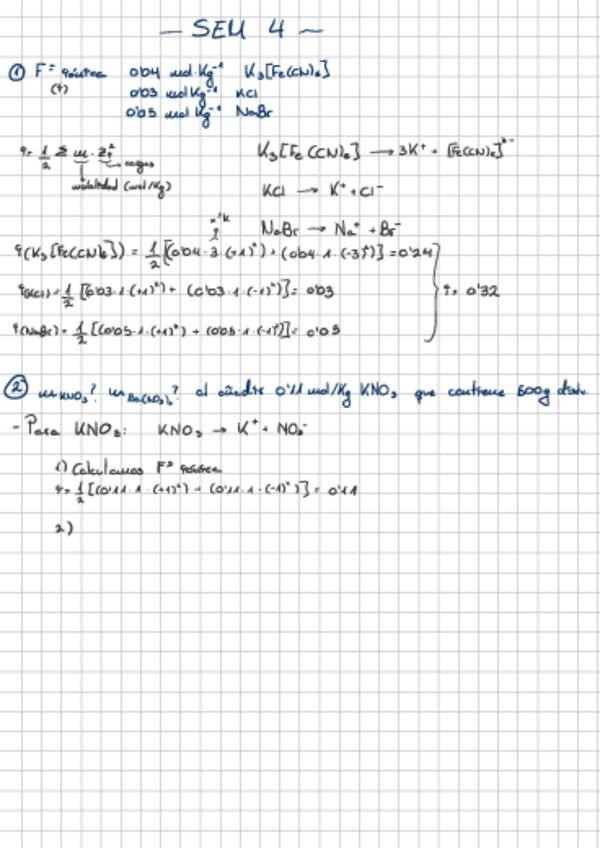 — SEM 4 —
① Fª iónica 0'04 mol·Kg⁻¹ K₃[Fe(CN)₆]
(I) 0'03 mol Kg⁻¹ KCl
0'05 mol Kg⁻¹ NaBr
I = 1/2 Σ m · zᵢ² cargas K₃[Fe(CN)₆] → 3K⁺ + [Fe(CN)₆]³⁻
molalidad (mol/Kg)
KCl → K⁺ + Cl⁻
nº K
NaBr → Na⁺ + Br⁻
I(K₃[Fe(CN)₆]) = 1/2 [(0'04·3·(+1)²) + (0'04·1·(-3)²)] = 0'24
I(KCl) = 1/2 [(0'03·1·(+1)²) + (0'03·1·(-1)²)] = 0'03 I = 0'32
I(NaBr) = 1/2 [(0'05·1·(+1)²) + (0'05·1·(-1)²)] = 0'05
② m KNO₃? m Ba(NO₃)₂? al añadir 0'11 mol/Kg KNO₃ que contiene 500g disolv.
- Para KNO₃: KNO₃ → K⁺ + NO₃⁻
1) Calculamos Fª iónica
I = 1/2 [(0'11·1·(+1)²) + (0'11·1·(-1)²)] = 0'11
2)